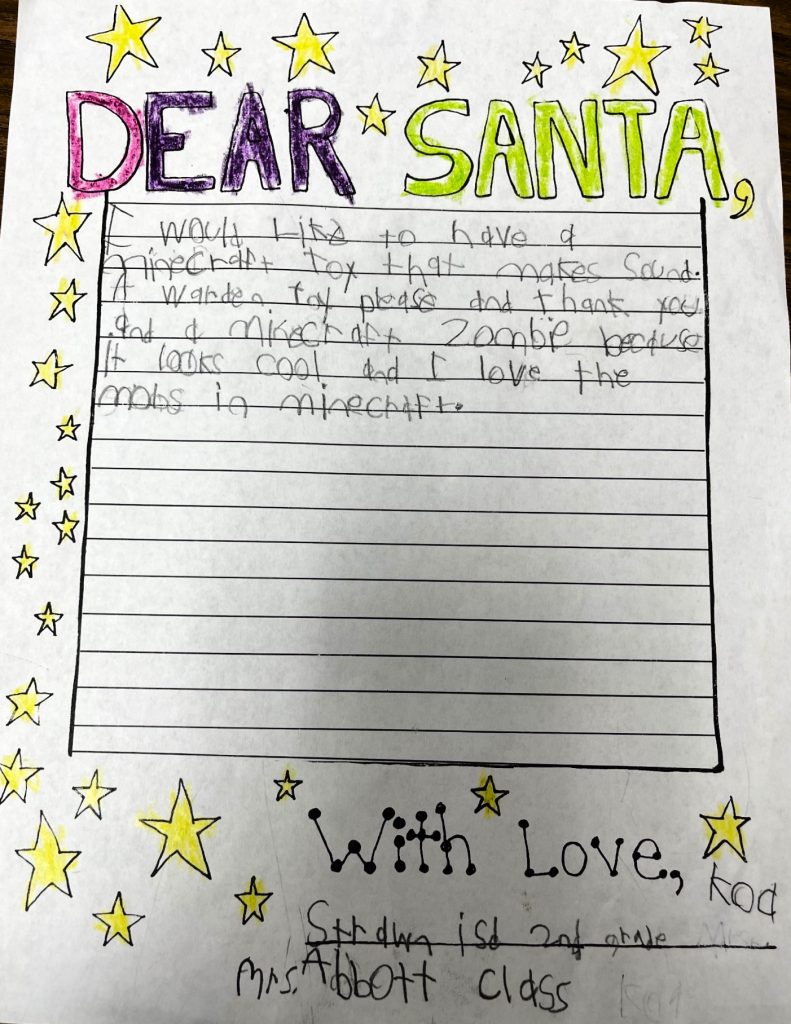 DEAR SANTA,
I would like to have a
minecraft toy that makes sound.
A warden toy please and thank you
And a minecraft zombie because
It looks cool and I love the
mobs in minecraft.
With Love, koa
isd 2nd grade
Mrs. Abbott class